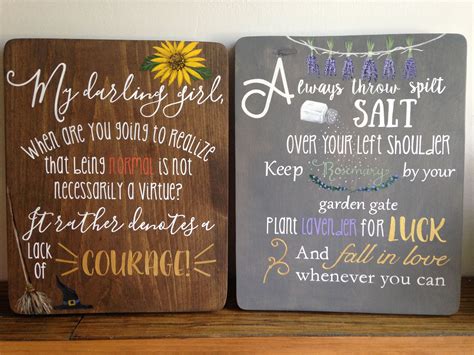 My darling girl,
When are you going to realize
that being normal is not
necessarily a virtue?
It rather denotes a
lack of COURAGE!
Always throw spilt
SALT
over your left shoulder
Keep Rosemary by your
garden gate
Plant lavender for LUCK
And fall in love
whenever you can